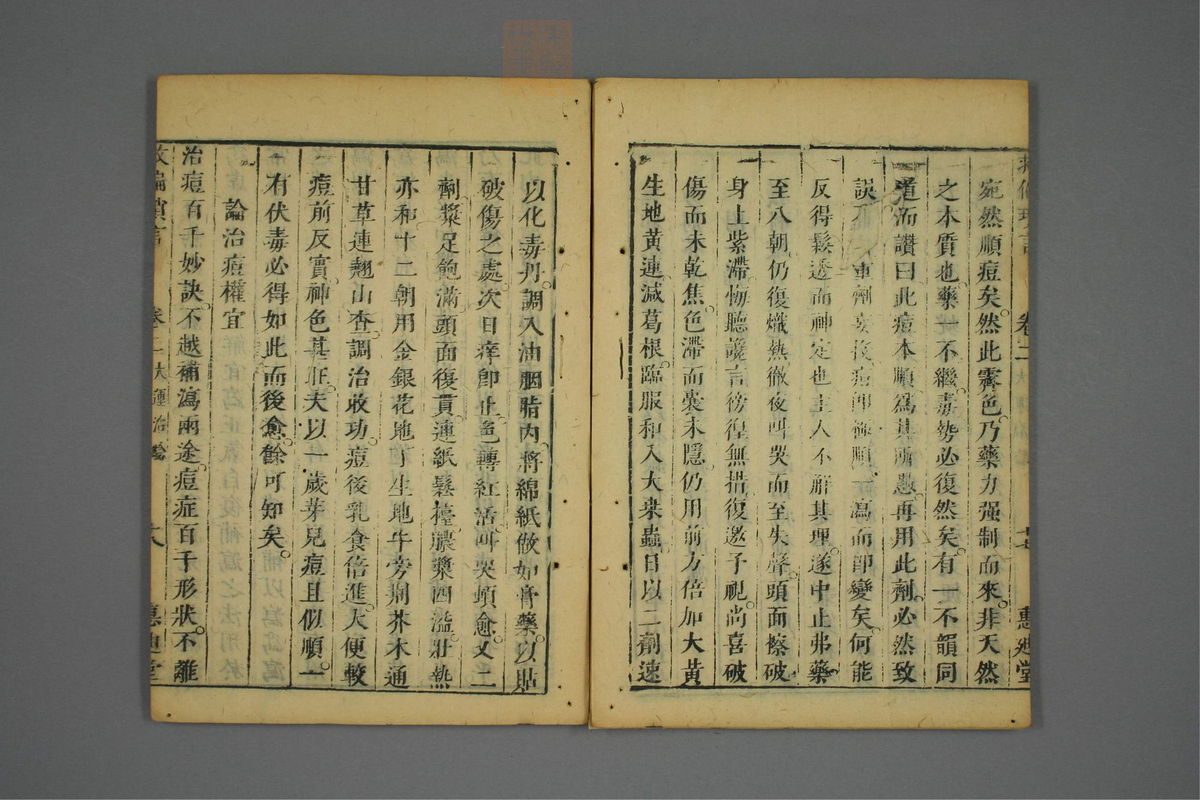 救偏瑣言 卷二 惠迪堂
宛然順痘矣然此霽色乃藥力强制而來非天然
之本質也藥不繼毒勢必復然矣有一不韻同
道而讚曰此痘本順為其所愚再用此劑必然致
誤重劑瀉而即變矣何能
反得鬆透而神定也主人不解其理遂中止弗藥
至八朝仍復熾熱徹夜叫哭而至失聲頭面擦破
身上紫滯悔聽讒言徬徨無措復邀予視尚喜破
傷而未乾焦色滯而囊未隱仍用前方倍加大黃
生地黃連減葛根臨服和入大桑蟲日以二劑速
以化毒丹調入油胭脂內將綿紙做如膏藥以貼
破傷之處次日痒即止色轉紅活叫哭頓愈又二
劑漿足飽滿頭面復貫連紙鬆擡膿漿四溢壯熱
亦和十二朝用金銀花地丁生地牛旁荆芥木通
甘草連翹山查調治收功痘後乳食倍進大便較
痘前反實神色甚旺夫以一歲芽兒痘且似順一
有伏毒必得如此而後愈餘可知矣
論治痘權宜
治痘百千妙訣不越補瀉兩途痘症百千形狀不離
救偏瑣言 卷二 大運治論 惠迪堂